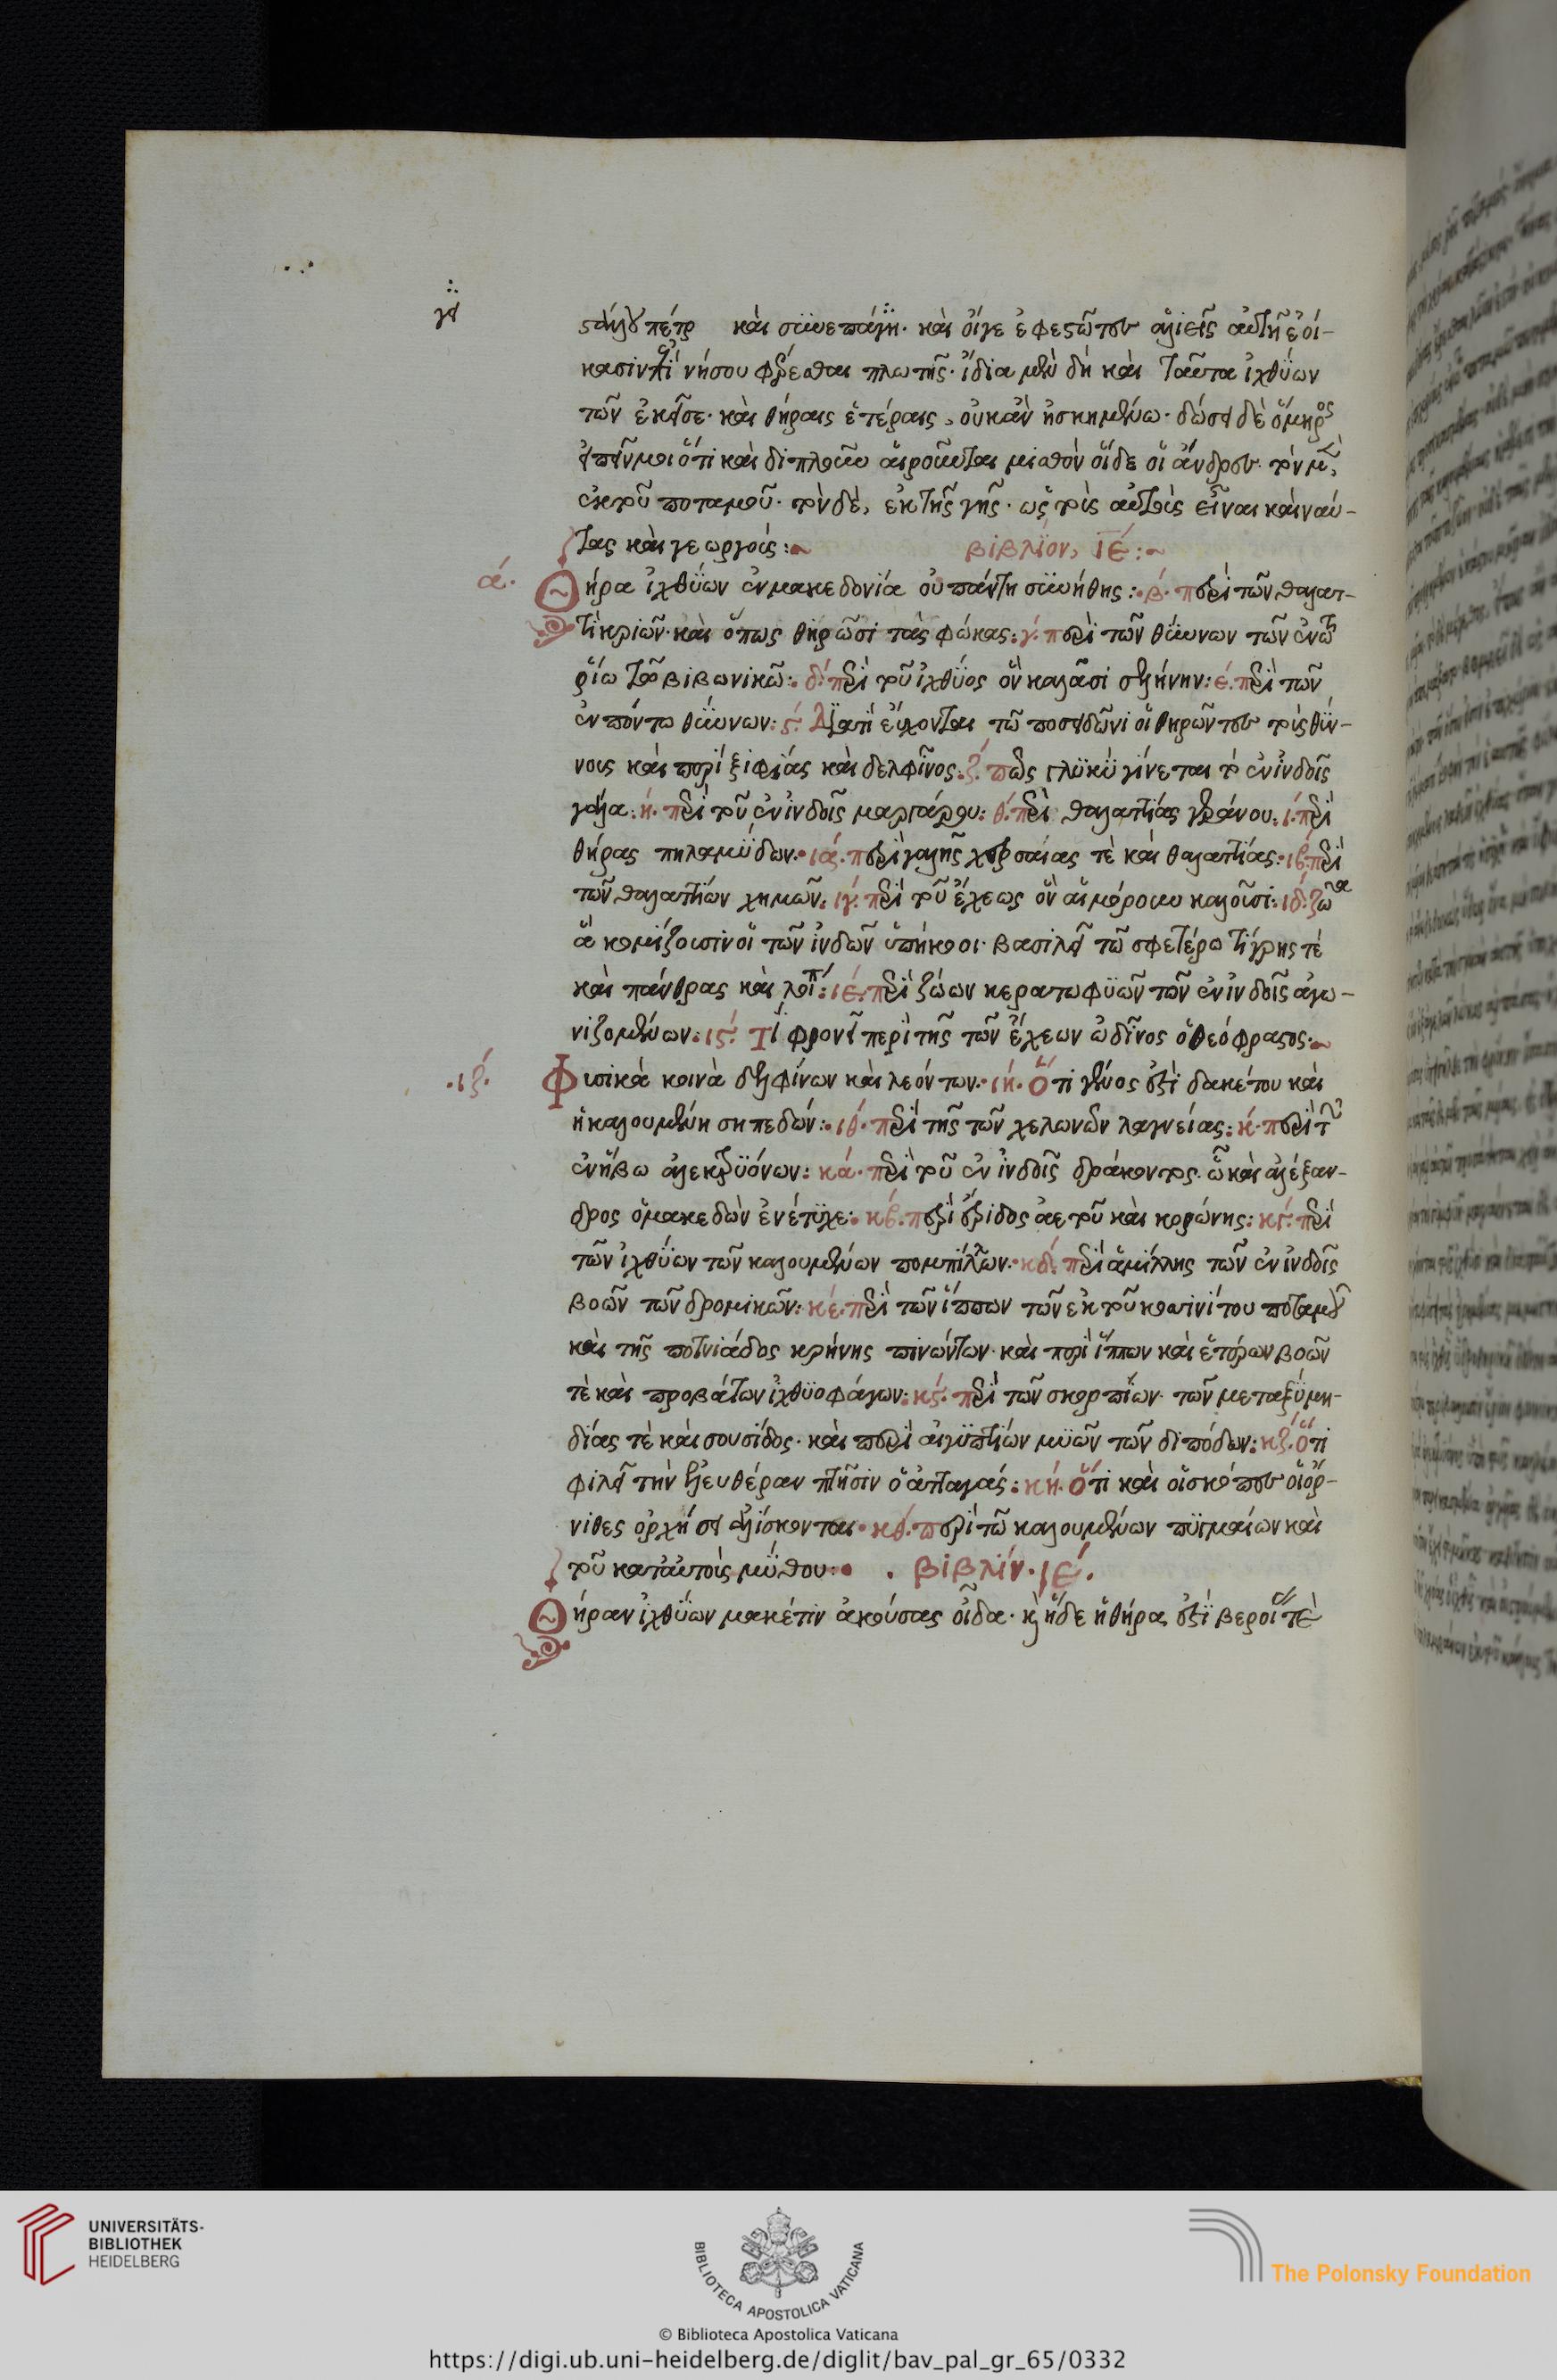 γει
καὶ συνεπάγη· καὶ οἵγε ἐφεστῶτες ἁλιεῖς αὐτῆ ἐοί-
κασιν νήσου πλωτῆς· ἴδια μὲν δὴ καὶ ταῦτα ἰχθύων
τῶν ἐκεῖσε· καὶ θήραις ἑτέραις, οὐκἂν ἠσκημένω· δώσει δὲ ὅμηρος
εἰπεῖν μοι ὅτι καὶ διπλοῦν αἴρονται μισθὸν οἵδε οἱ ἄνδρες· τὸν μὲν,
ἐκ τοῦ ποταμοῦ· τὸν δὲ, ἐκ τῆς γῆς· ὡς τοὺς αὐτοὺς εἶναι καὶ ναύ-
τας καὶ γεωργοὺς:~ βιβλίον, ιέ:~
ά· Θήρα ἰχθύων ἐν μακεδονία οὐ πάντη συνήθης:· β· περὶ τῶν θαλατ-
τὶ κριῶν· καὶ ὅπως θηρῶσι τὰς φώκας: γ· περὶ τῶν θύννων τῶν ἐν τῶ
βιβωνικῶ:· δ· περὶ τοῦ ἰχθύος ὃν καλοῦσι σελήνην: έ· περὶ τῶν
ἐν πόντω θύννων: ϛ· Διατί εὔχονται τῶ ποσειδῶνι οἱ θηρῶντες τοὺς θύν-
νους καὶ περὶ ξιφίας καὶ δελφῖνος· ζ· πῶς γλυκὺ γίνεται τὸ ἐν ἰνδοῖς
γάλα: ή· περὶ τοῦ ἐν ἰνδοῖς μαργάρου: θ· περὶ θαλαττίας γεράνου: ι· περὶ
θήρας πηλαμύδων· ιά· περὶ γαλῆς χερσαίας τὲ καὶ θαλαττίας· ιβ· περὶ
τῶν θαλαττίων χημῶν: ιγ· περὶ τοῦ ἔχεως ὃν αἱμόρουν καλοῦσι: ιδ· ζῶα
ἃ κομίζουσιν οἱ τῶν ἰνδῶν ὑπήκοοι· βασιλεῖ τῶ σφετέρω τίγρης τὲ
καὶ πάνθρας καὶ λοιπ: ιέ· περὶ ζώων κερατωφυῶν τῶν ἐν ἰνδοῖς ἀγω-
νιζομένων: ιϛ· Τί φρονεῖ περὶ τῆς τῶν ἔχεων ὠδῖνος ὁ θεόφραστος·~
·ιζ· Φυσικὰ κοινὰ δελφίνων καὶ λεόντων· ιή· Ὅτι γένος ἐστὶ δακέτου καὶ
ἡ καλουμένη σηπεδών:· ιθ· περὶ τῆς τῶν χελωνῶν λαγνείας: κ· περὶ τῶν
ἐν ἥβω ἀλεκτρυόνων: κά· περὶ τοῦ ἐν ἰνδοῖς δράκοντος· ὧ καὶ ἀλέξαν-
δρος ὁ μακεδὼν ἐνέτυχε: κβ· περὶ ἔριδος ἀετοῦ καὶ κορώνης: κγ· περὶ
τῶν ἰχθύων τῶν καλουμένων πομπίλων· κδ· περὶ ἁμίλλης τῶν ἐν ἰνδοῖς
βοῶν τῶν δρομικῶν: κέ· περὶ τῶν ἵππων τῶν ἐκ τοῦ κοσινίτου ποταμοῦ
καὶ τῆς ποτνιάδος κρήνης πινόντων· καὶ περὶ ἵππων καὶ ἑτέρων βοῶν
τὲ καὶ προβάτων ἰχθυοφάγων: κϛ· περὶ τῶν σκορπίων· τῶν μεταξὺ μη-
δίας τὲ καὶ σουσίδος· καὶ περὶ αἰγυπτίων μυῶν τῶν διπόδων: κζ· Ὅτι
φιλεῖ τὴν ἐλευθέραν πτῆσιν ὁ ἀτταγάς: κή· Ὅτι καὶ οἱ σκῶπες οἱ ὄρ-
νιθες ὀρχήσει ἁλίσκονται· κθ· περὶ τῶ καλουμένων πυγμαίων καὶ
τοῦ κατ᾽αὐτοὺς μύθου:· · βιβλίν· ιέ·
Θήραν ἰχθύων μακέτιν ἀκούσας οἶδα· καὶ ἥδε ἡ θήρα ἐστὶ
UNIVERSITÄTS-
BIBLIOTHEK
HEIDELBERG
BIBLIOTECA APOSTOLICA VATICANA
The Polonsky Foundation
© Biblioteca Apostolica Vaticana
https://digi.ub.uni-heidelberg.de/diglit/bav_pal_gr_65/0332